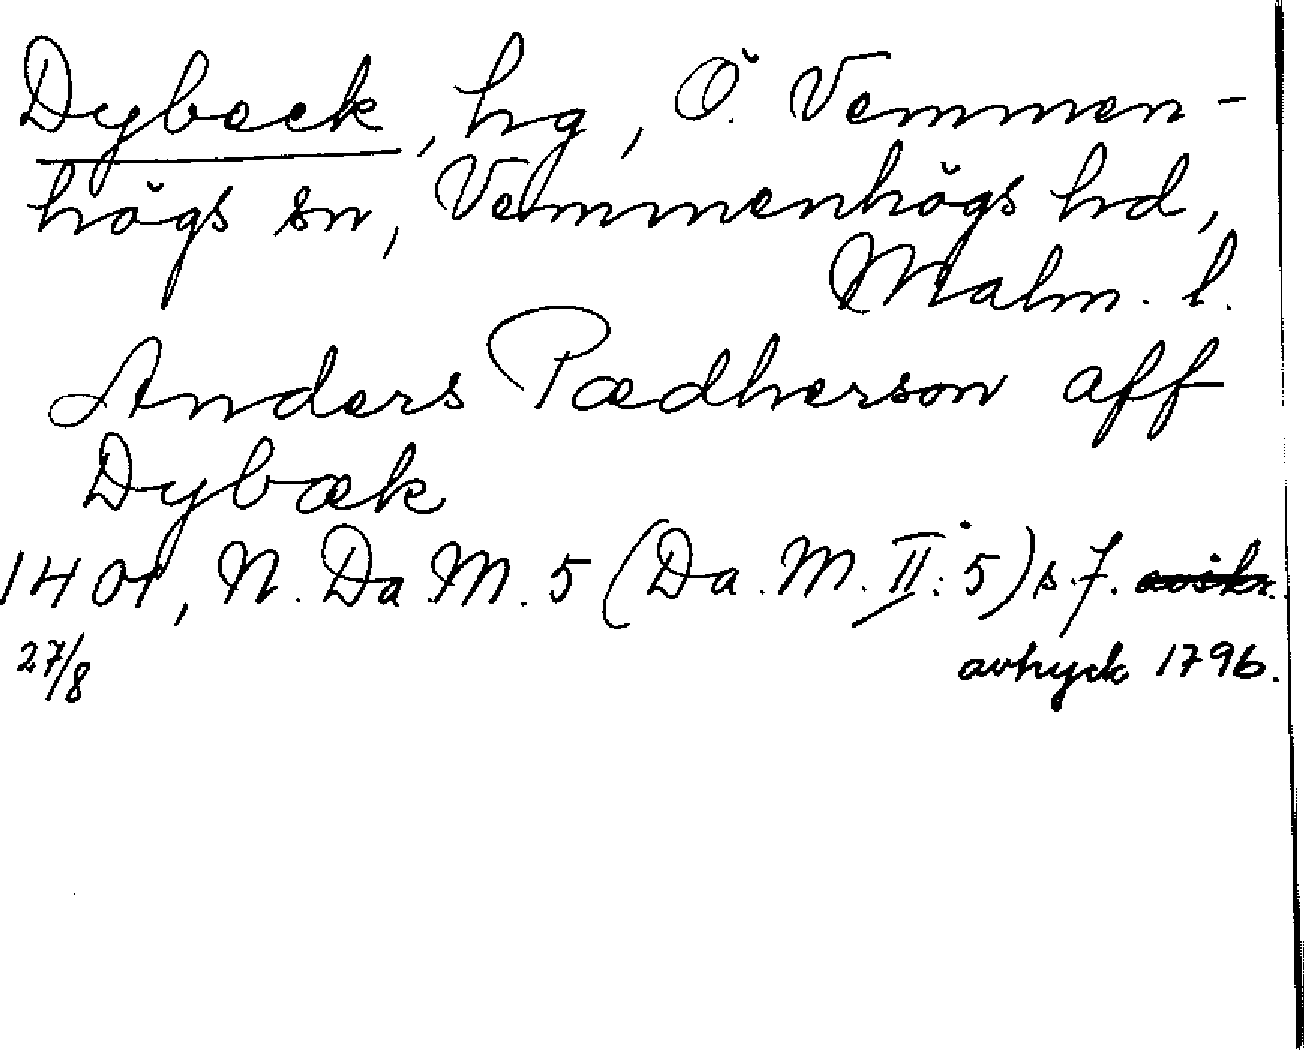 Dybeck, hg, Ö. Vemmen-
högs sn, Vemmenhögs hd,
Malm. l.
Anders Pædherson aff
Dybæk
1401, N. Da M. 5 (Da. M. II: 5) s. 7.
27/8 avtryck 1796.